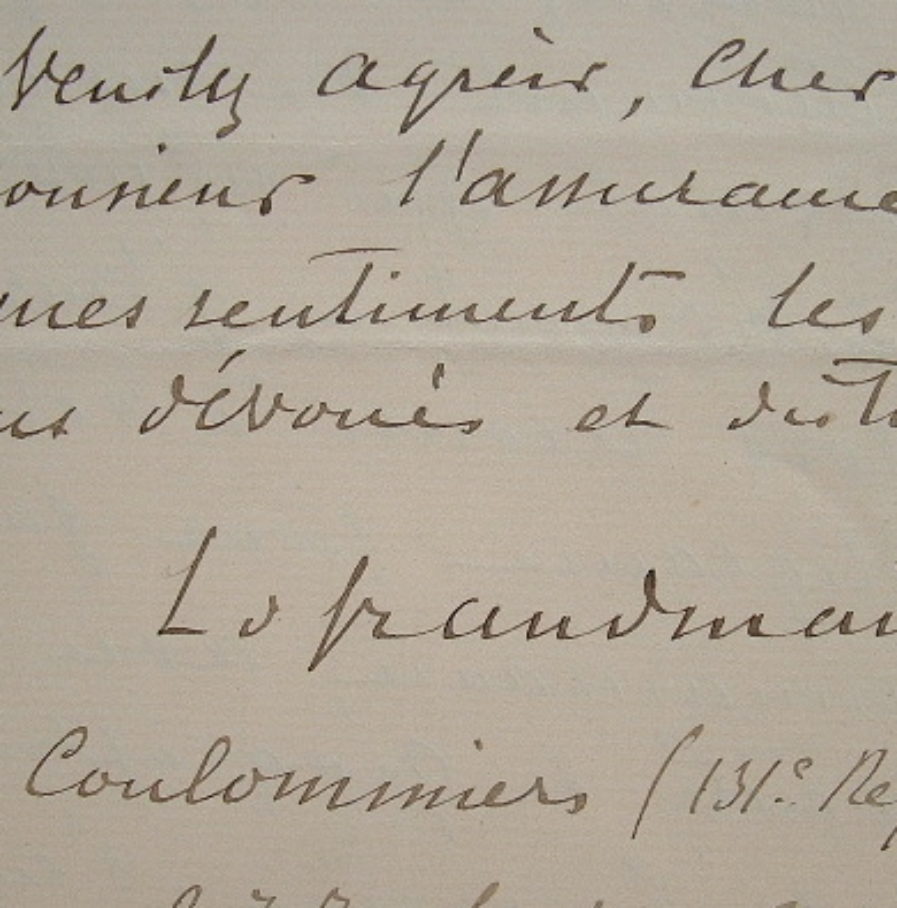 Veuillez agréer, Cher
onsieur l'assurance
mes sentiments les
us dévoués et dist
Coulommiers (131e Re